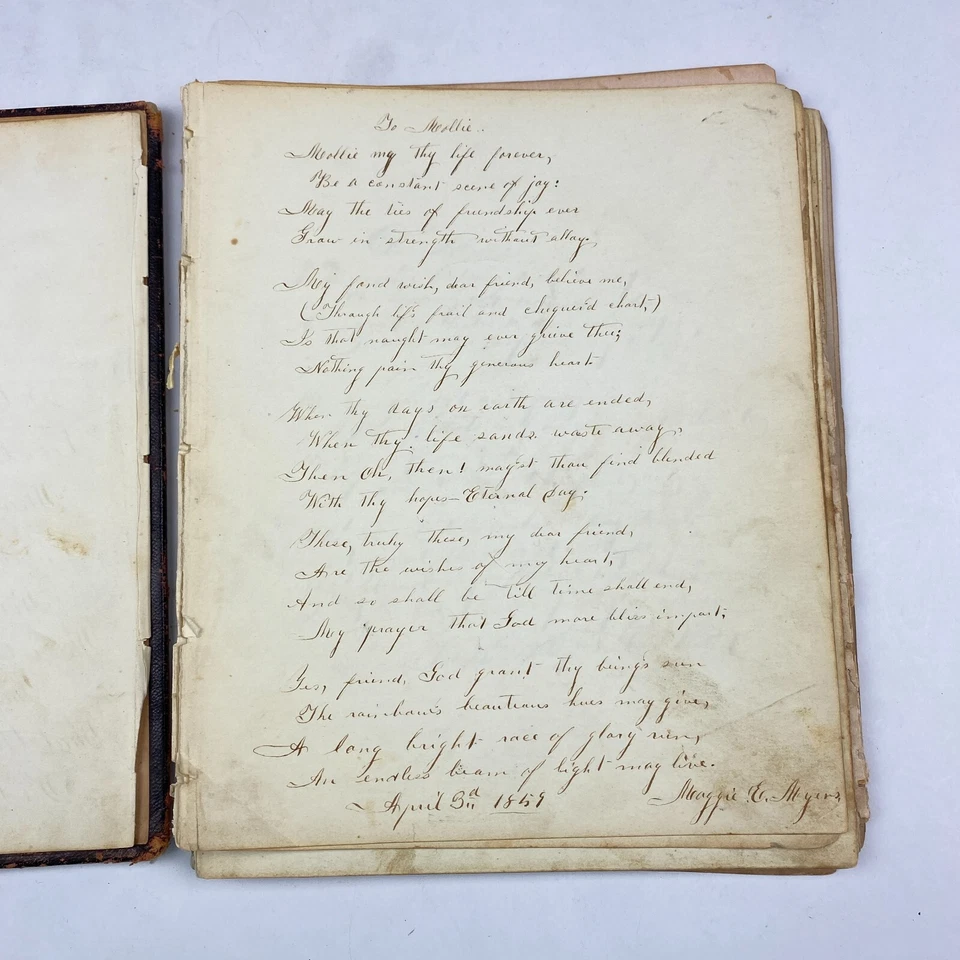 To Mollie.
Mollie my thy life forever,
Be a constant scene of joy:
May the ties of friendship ever
Grow in strength without alloy,
My fond wish, dear friend, believe me,
(Through life's frail and chequer'd chart,)
Is that naught may ever grieve thee;
Nothing pain thy generous heart
When thy days on earth are ended,
When thy life sands waste away,
Then Oh, then! may'st thou find blended
With thy hopes – Eternal Day;
These, truly these, my dear friend,
Are the wishes of my heart,
And so shall be till time shall end,
My prayer that God more bliss impart;
Yes, friend, God grant thy being's sun
The rainbow's beautious hues may give,
A long bright race of glory run,
An endless beam of light may live.
April 3d 1859
Maggie E. Myers